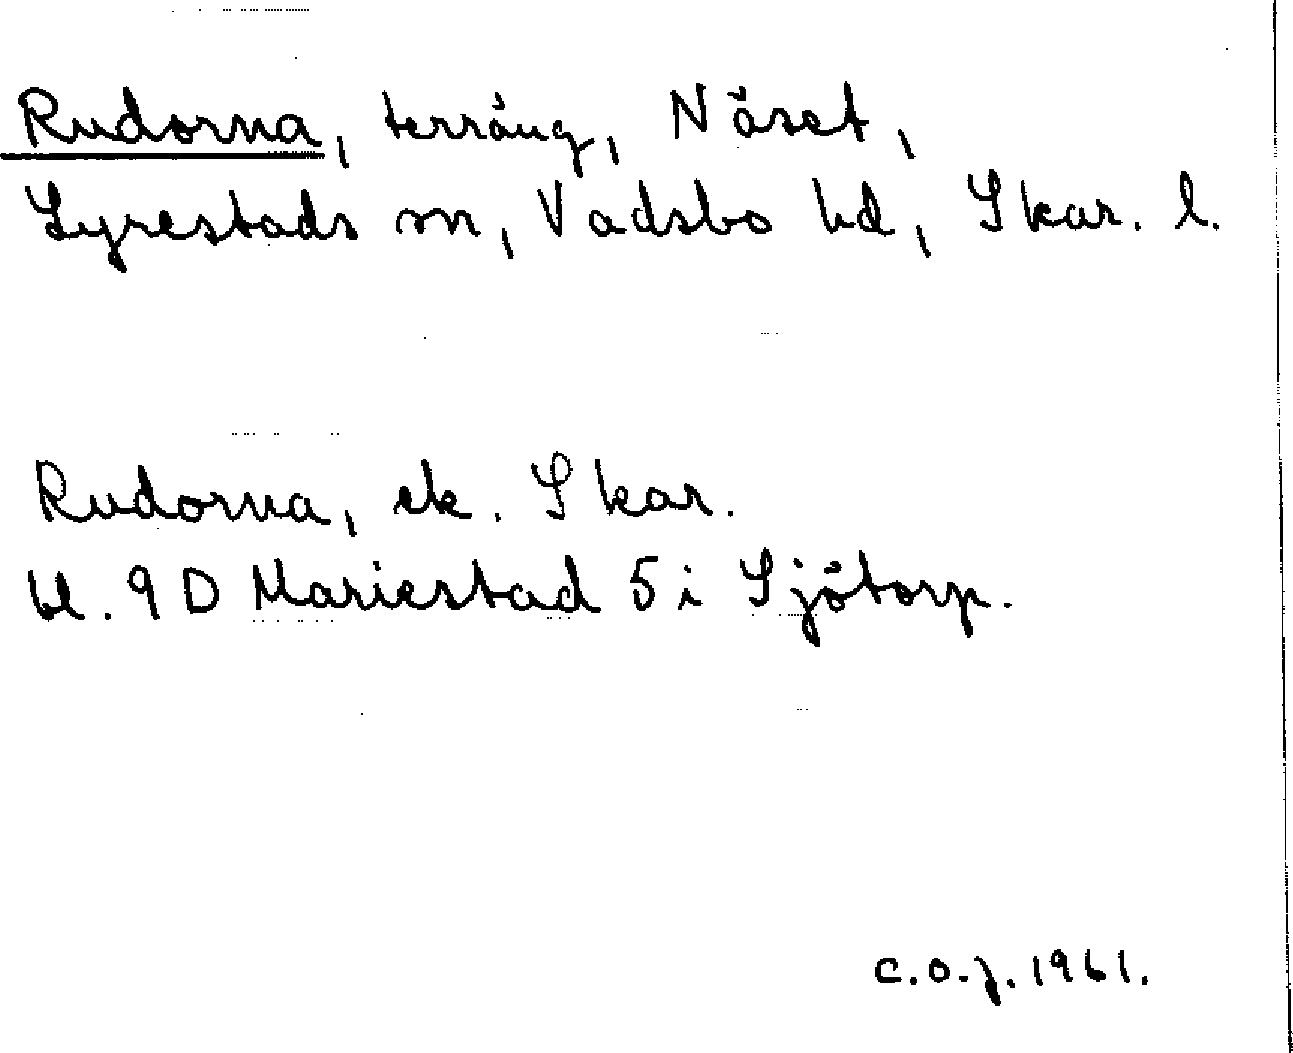 Rudorna, terräng, Näset,
Lyrestads sn, Vadsbo hd, Skar. l.
Rudorna, ek. Skar.
bl. 9 D Mariestad 5 i Sjötorp.
C.O.J. 1961.